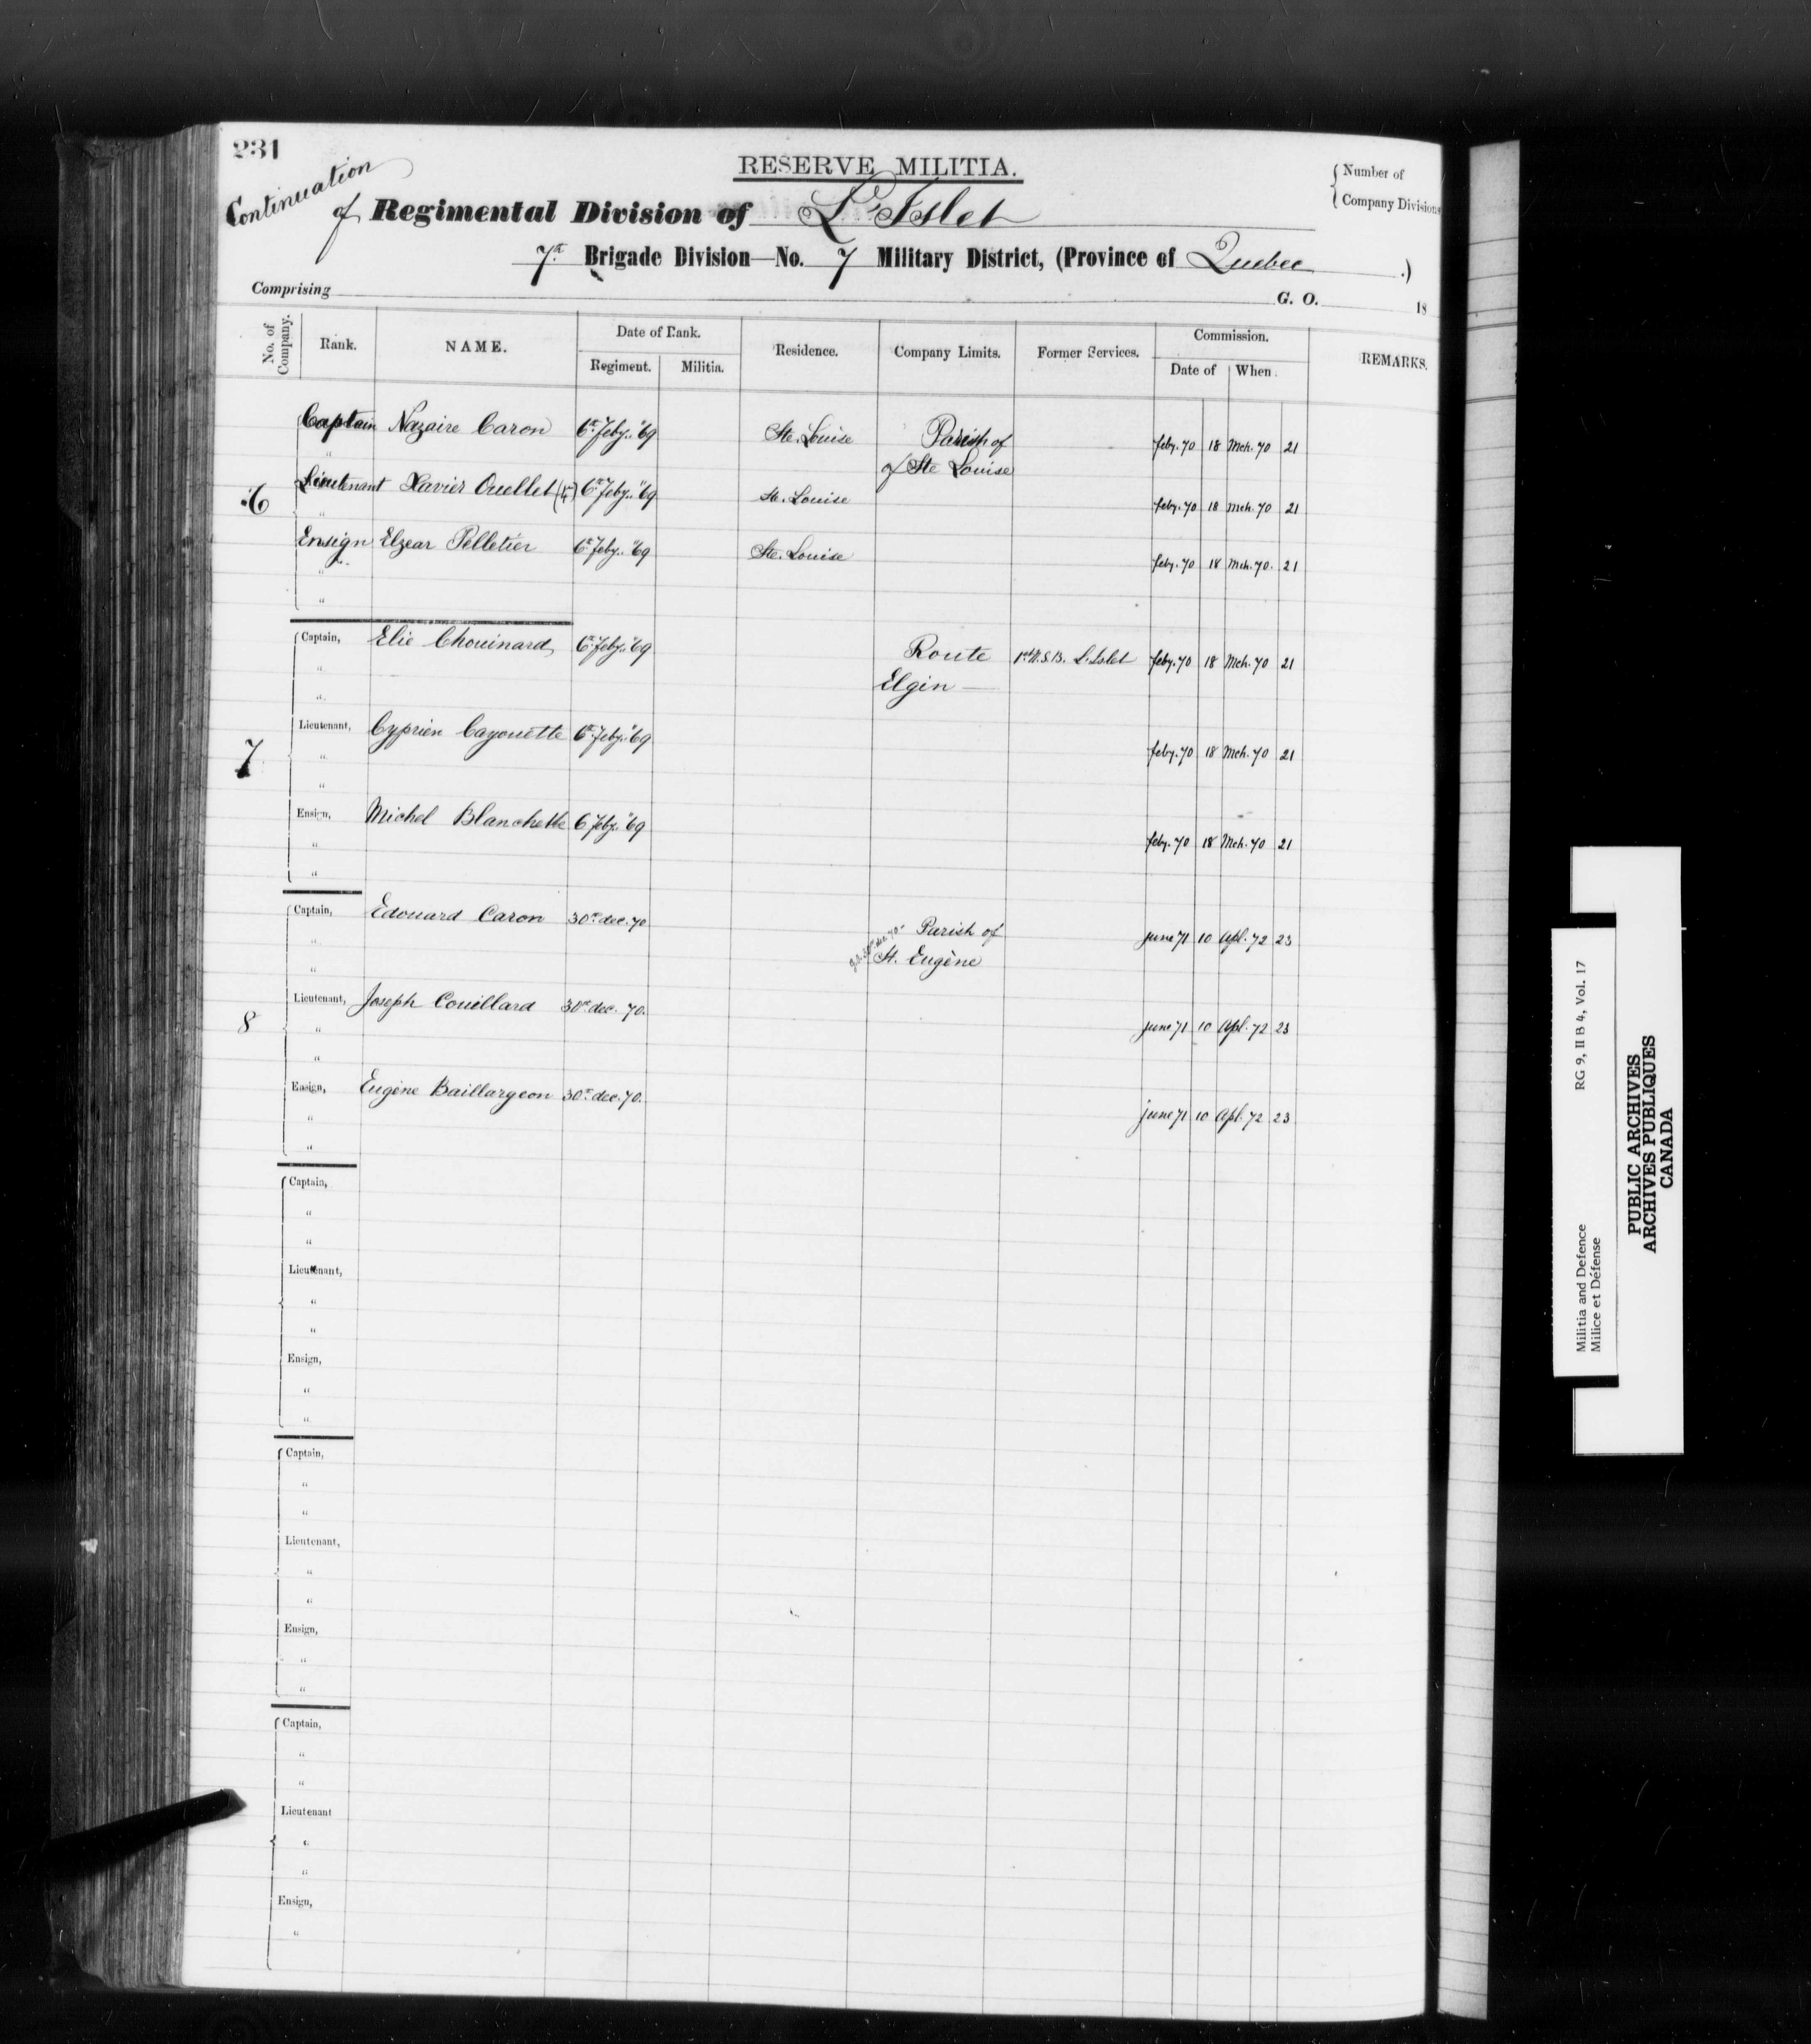 231
RESERVE MILITIA.
{ Number of
{ Company Divisions
Continuation
of Regimental Division of L'Islet
7th Brigade Division—No. 7 Military District, (Province of Quebec .)
Comprising G. O. 18
No. of Company. Rank. NAME. Date of Rank. Residence. Company Limits. Former Services. Commission. REMARKS.
Regiment. Militia. Date of When
Captain Nazaire Caron 6th Feby. "69 Ste. Louise Parish of feby. 70 18 Mch. 70 21
" of Ste Louise
6 Lieutenant Xavier Ouellet 6th Feby. "69 Ste. Louise feby. 70 18 Mch. 70 21
"
Ensign Elzear Pelletier 6th Feby. "69 Ste. Louise feby. 70 18 Mch. 70. 21
"
"
Captain, Elie Chouinard 6th Feby. "69 Route 1st N.S.B. L'Islet feby. 70 18 Mch. 70 21
" Elgin —
"
7 Lieutenant, Cyprien Cayouette 6th Feby. "69 feby. 70 18 Mch. 70 21
"
"
Ensign, Michel Blanchette 6 Feby. "69 feby. 70 18 Mch. 70 21
"
"
Captain, Edouard Caron 30th dec. 70 Parish of june 71 10 Apl. 72 23
" St. Eugène
"
8 Lieutenant, Joseph Couillard 30th dec. 70. june 71 10 Apl. 72 23
"
"
Ensign, Eugène Baillargeon 30th dec. 70. june 71 10 Apl. 72 23
"
"
Captain,
"
"
Lieutenant,
"
"
Ensign,
"
"
Captain,
"
"
Lieutenant,
"
"
Ensign,
"
"
Captain,
"
"
Lieutenant
"
"
Ensign,
"
Militia and Defence RG 9, II B 4, Vol. 17
Milice et Défense
PUBLIC ARCHIVES
ARCHIVES PUBLIQUES
CANADA